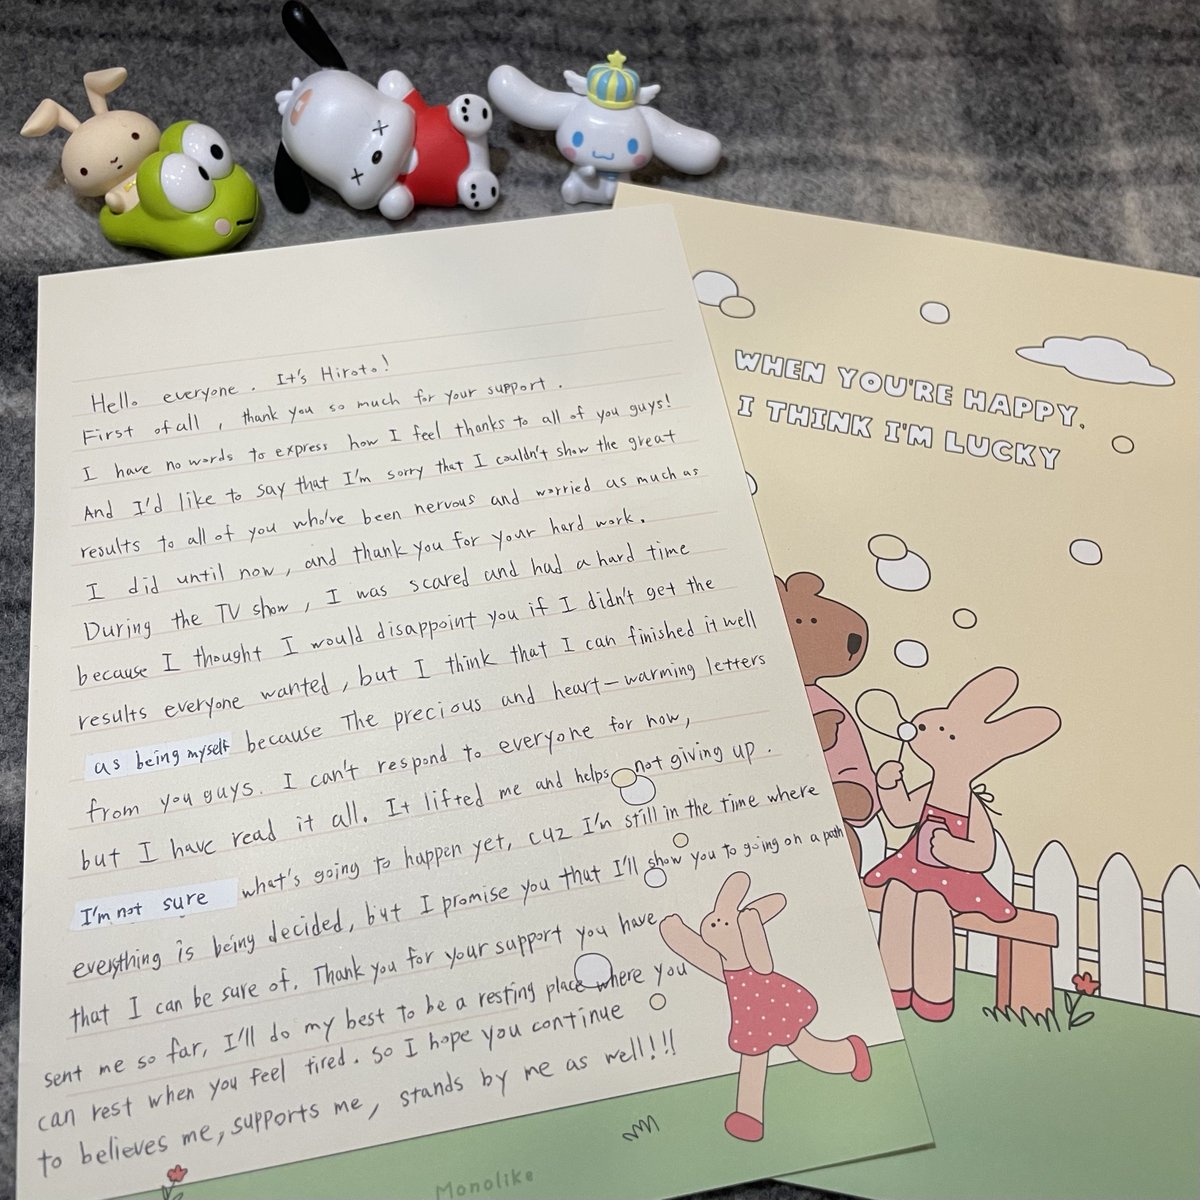 Hello everyone. It's Hiroto!
First of all, thank you so much for your support.
I have no words to express how I feel thanks to all of you guys!
And I'd like to say that I'm sorry that I couldn't show the great
results to all of you who've been nervous and worried as much as
I did until now, and thank you for your hard work.
During the TV show, I was scared and had a hard time
because I thought I would disappoint you if I didn't get the
results everyone wanted, but I think that I can finished it well
as being myself because The precious and heart-warming letters
from you guys. I can't respond to everyone for now,
but I have read it all. It lifted me and helps not giving up.
I'm not sure what's going to happen yet, cuz I'm still in the time where
everything is being decided, but I promise you that I'll show you to going on a path
that I can be sure of. Thank you for your support you have
sent me so far, I'll do my best to be a resting place where you
can rest when you feel tired. so I hope you continue
to believes me, supports me, stands by me as well!!!
Monolike
WHEN YOU'RE HAPPY.
I THINK I'M LUCKY